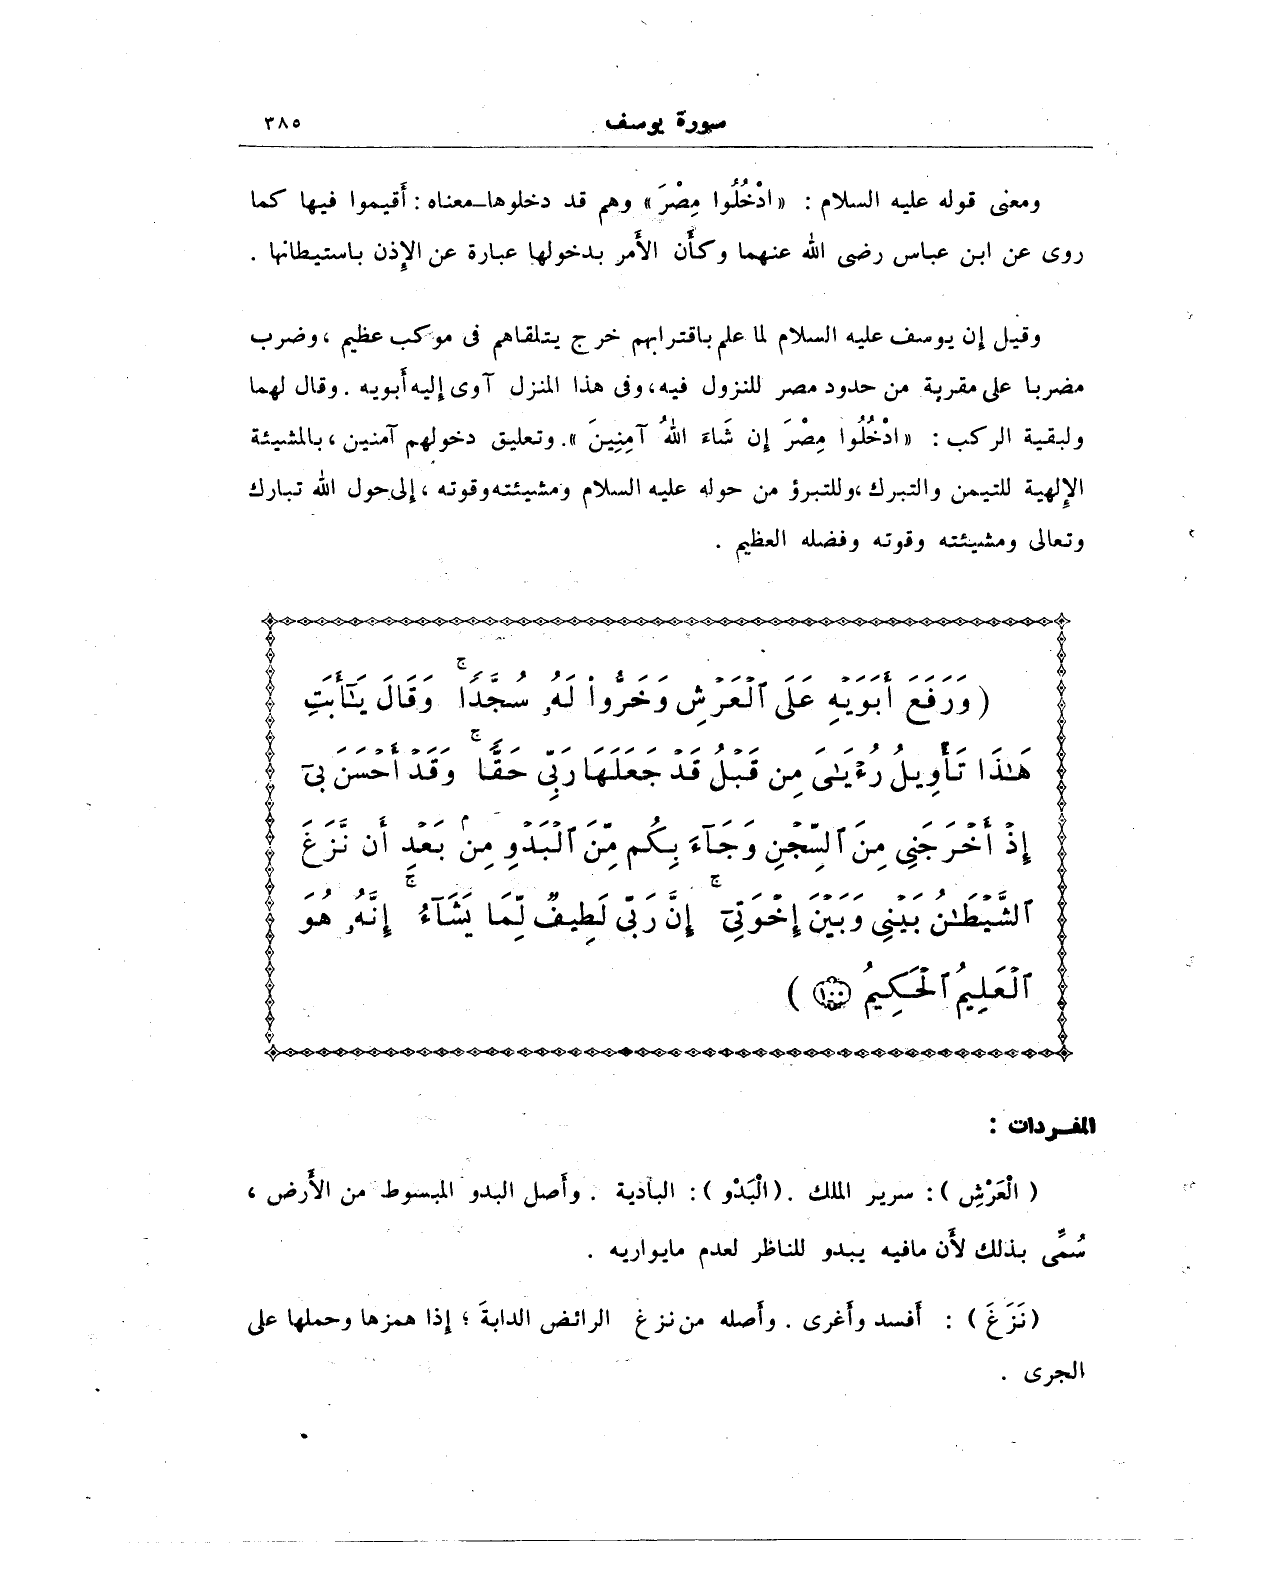 سورة يوسف ٣٨٥
ومعنى قوله عليه السلام : « ادْخُلُوا مِصْرَ » وهم قد دخلوها ــ معناه : أَقيموا فيها كما
روى عن ابن عباس رضى الله عنهما وكأَن الأَمر بدخولها عبارة عن الإِذن باستيطانها .
وقيل إِن يوسف عليه السلام لما علم باقترابهم خرج يتلقاهم فى موكب عظيم ، وضرب
مضربا على مقربة من حدود مصر للنزول فيه، وفى هذا المنزل آوى إليه أَبويه . وقال لهما
ولبقية الركب : « ادْخُلُوا مِصْرَ إِن شَاءَ اللهُ آمِنِينَ ». وتعليق دخولهم آمنين ، بالمشيئة
الإِلهية للتيمن والتبرك ،وللتبرؤ من حوله عليه السلام ومشيئته وقوته ، إلى حول الله تبارك
وتعالى ومشيئته وقوته وفضله العظيم .
( وَرَفَعَ أَبَوَيۡهِ عَلَى ٱلۡعَرۡشِ وَخَرُّواْ لَهُۥ سُجَّدٗاۖ وَقَالَ يَٰٓأَبَتِ
هَٰذَا تَأۡوِيلُ رُءۡيَٰىَ مِن قَبۡلُ قَدۡ جَعَلَهَا رَبِّى حَقّٗاۖ وَقَدۡ أَحۡسَنَ بِىٓ
إِذۡ أَخۡرَجَنِى مِنَ ٱلسِّجۡنِ وَجَآءَ بِكُم مِّنَ ٱلۡبَدۡوِ مِنۢ بَعۡدِ أَن نَّزَغَ
ٱلشَّيۡطَٰنُ بَيۡنِى وَبَيۡنَ إِخۡوَتِىٓۚ إِنَّ رَبِّى لَطِيفٞ لِّمَا يَشَآءُۚ إِنَّهُۥ هُوَ
ٱلۡعَلِيمُ ٱلۡحَكِيمُ ١٠٠ )
المفـردات :
( الْعَرْشِ ) : سرير الملك . ( الْبَدْوِ ) : البادية . وأَصل البدو المبسوط من الأَرض ،
سُمِّى بذلك لأَن مافيه يبدو للناظر لعدم مايواريه .
( نَزَغَ ) : أَفسد وأَغرى . وأَصله من نزغ الرائض الدابةَ ؛ إِذا همزها وحملها على
الجرى .